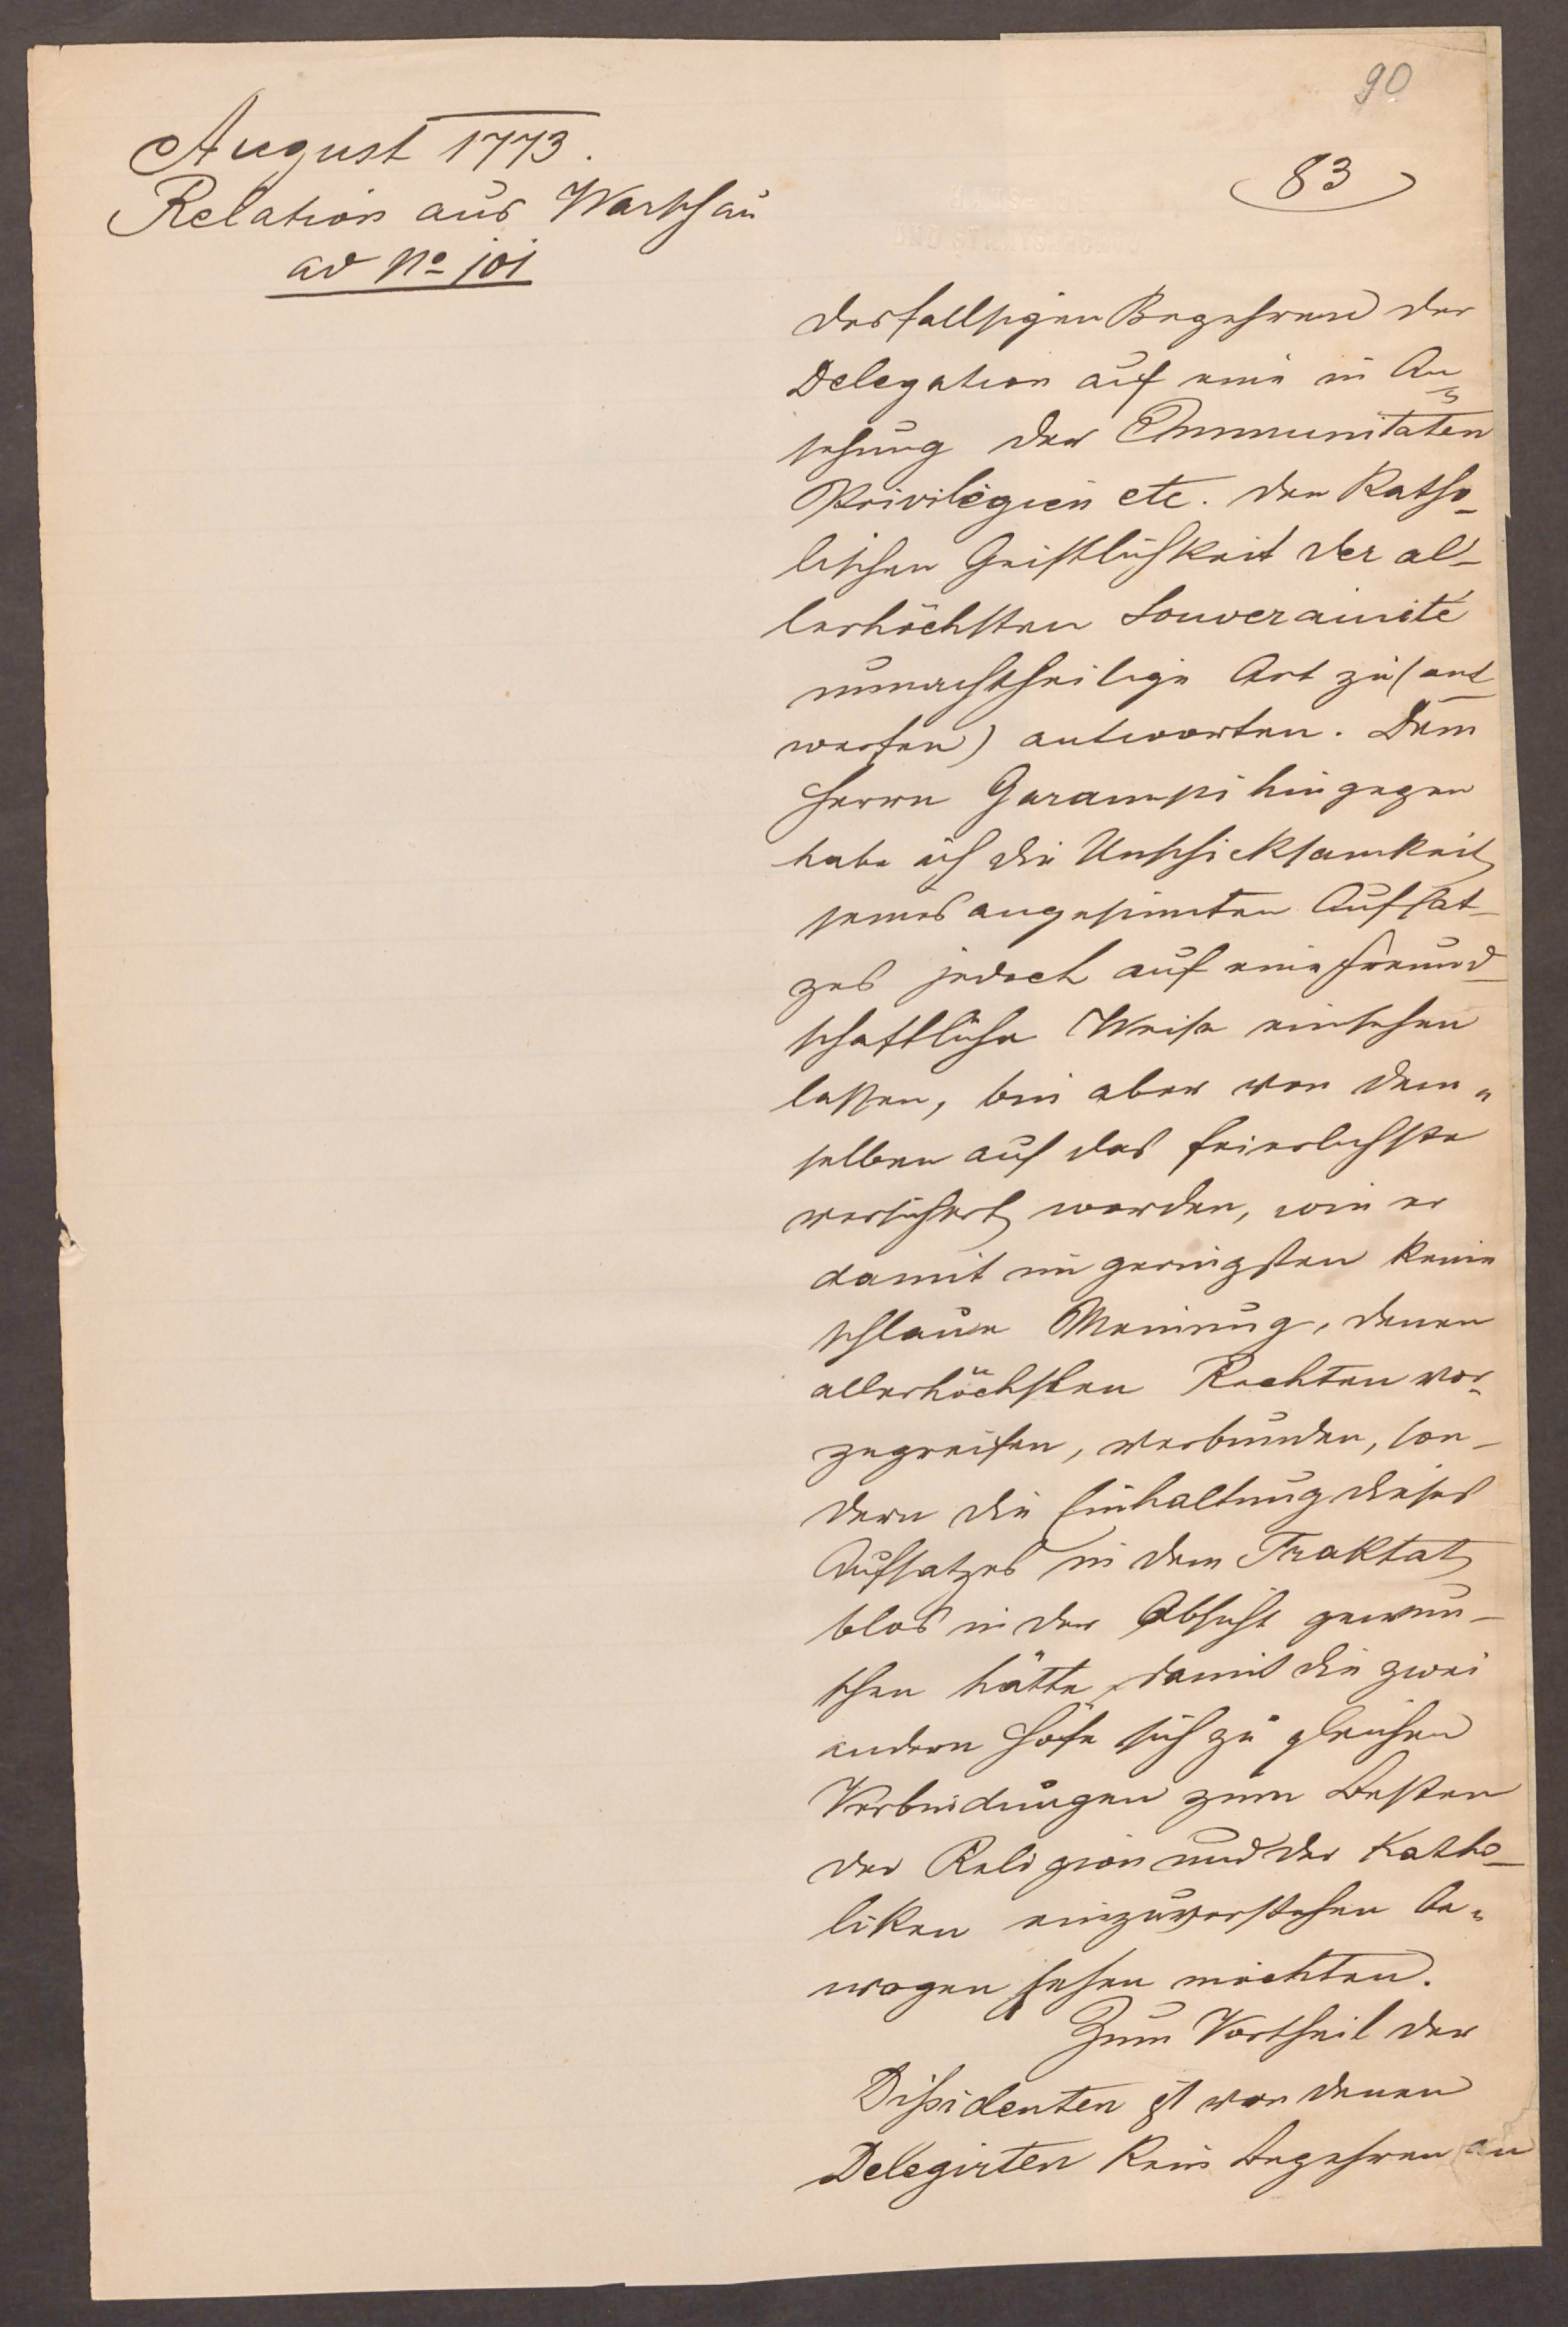 90
August 1773.
Relation aus Warschau
ad No 101
83
desfallsigen Begehren der
Delegation auf eine in An„
sehung der Immunitäten
Privilegien etc. der Katho-
lischen Geistlichkeit der al-
lerhöchsten Souverainité
unnachtheilige Art zu (ant-
worten) antworten. Dem
Herrn Garampi hingegen
habe ich die Unschicksamkeit
seines angesinnten Aufsat-
zes jedoch auf eine freund-
schaftliche Weise einsehen
lassen, bin aber von dem„
selben auf das feierlichste
versichert worden, wie er
damit im geringsten keine
schlaue Meinung, denen
allerhöchsten Rechten vor-
zugreifen, verbunden, son-
dern die Einhaltung dieses
Aufsatzes in dem Traktat
blos in der Absicht gewün-
schen hätte, damit die zwei
andern Höfe sich zu gleichen
Verbindungen zum Besten
der Religion und der Katho-
liken einzuverstehen be„
wogen sehen möchten.
Zum Vortheil der
Dissidenten ist von denen
Delegirten kein Begehren an